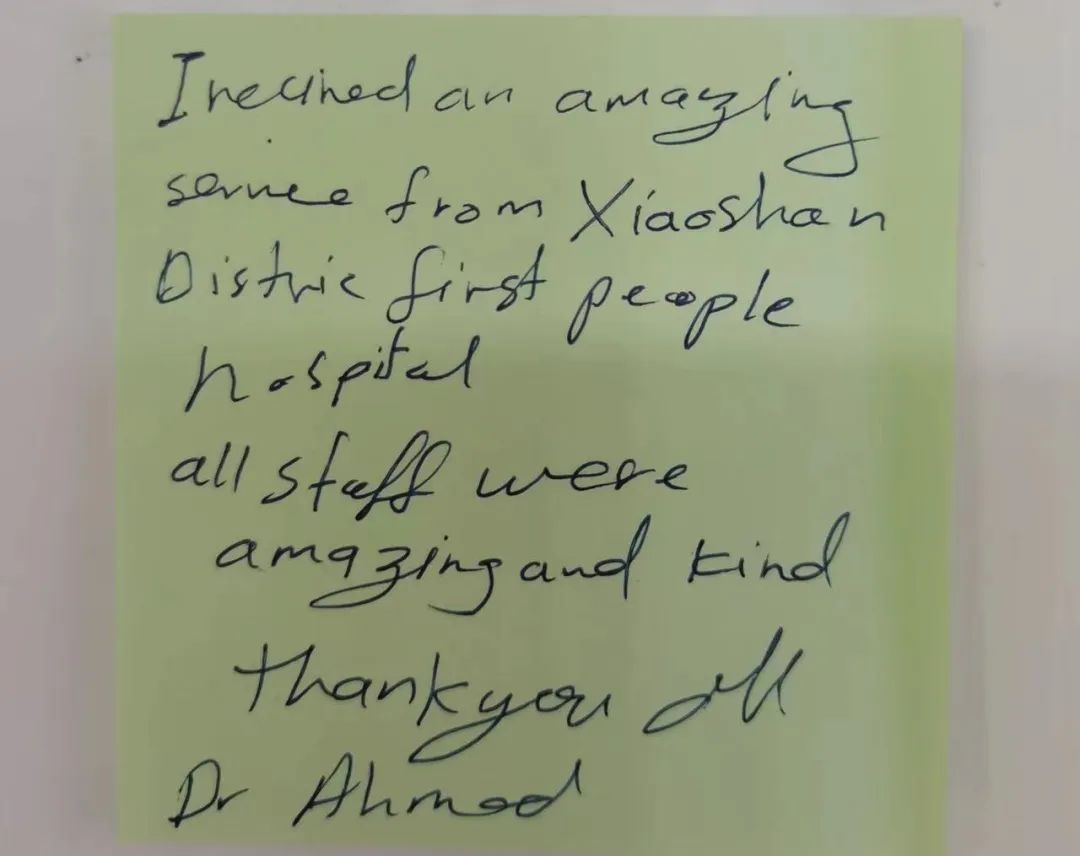 I recived an amazing
service from Xiaoshan
Distric first people
hospital
all staff were
amazing and kind
thank you all
Dr Ahmed